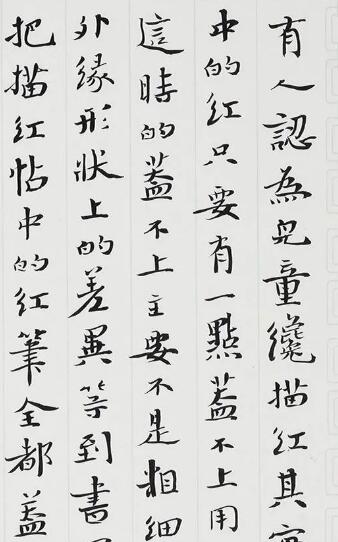 有人認為兒童纔描紅其實
中的紅只要有一點蓋不上用
這時的蓋不上主要不是粗細
外緣形狀上的差異等到書
把描紅帖中的紅筆全都蓋